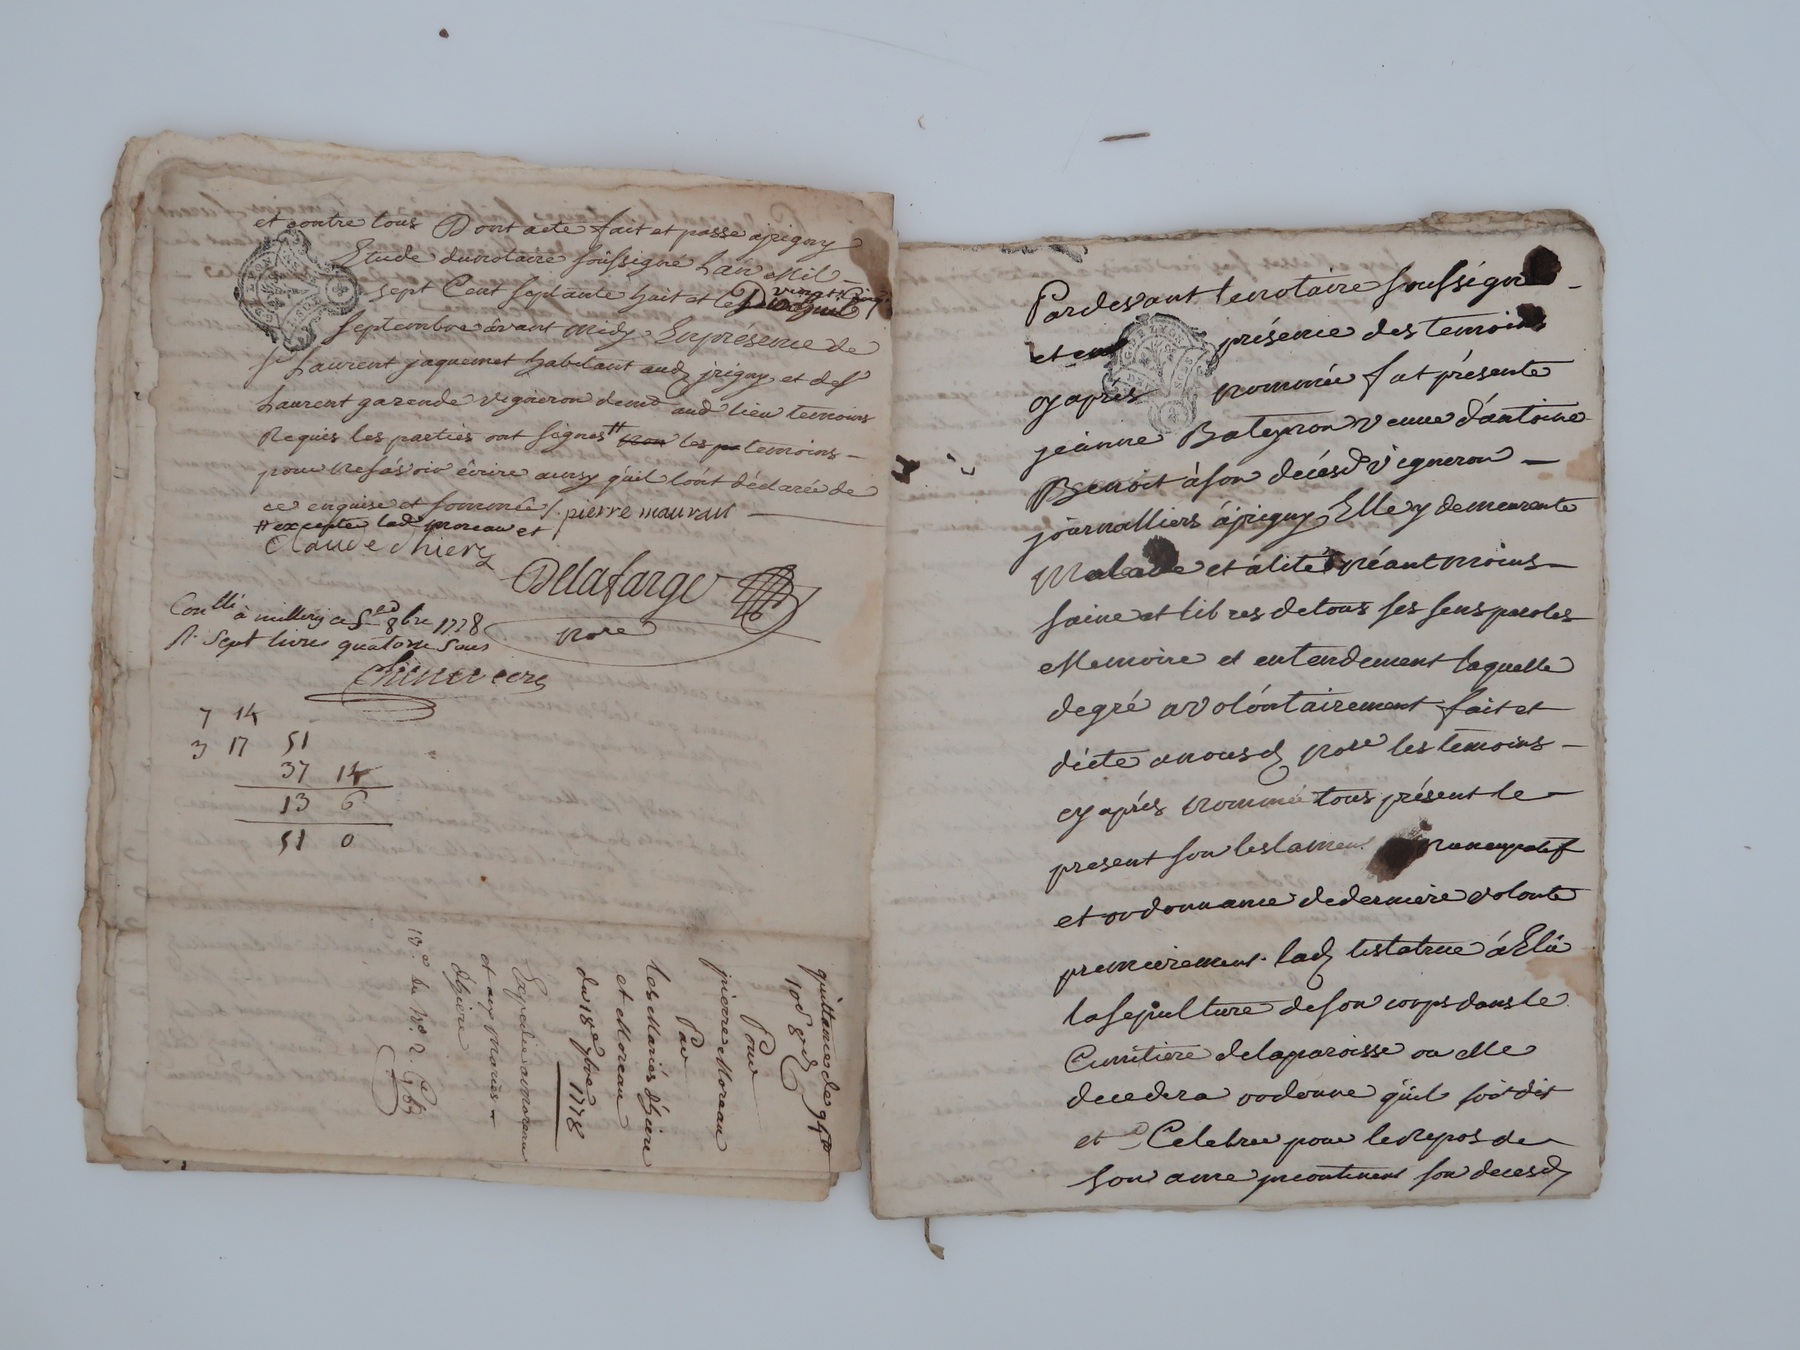 et contre tous Dont acte fait et passe a jrigny
Etude du notaire soussigné Lan Mil
sept Cent septante huit et le vingt cinq
septembre avant midy En présence de
sr Laurent jaquemet habitant aud jrigny et de sr
Laurent garende vigneron demt aud lieu temoins
Requis les parties ont signes # les temoins
pour ne sávoir écrire ainsy quil lont déclarée de
ce enquise et sommée / pierre mauvau
# excepte lad moreau et
Claude Thiery
Delafarge
Nore
Conllé à millery ce 8bre 1778
R. sept livres quatorze sous
7 14
3 17 51
37 14
13 6
51 0
quittance de 94tt
10s 8d
Pour
pierre Moreau
Par
les Mariés dgiere
et Moreau
du 18e 7bre 1778
Expedie a moreau
et aux mariés
dgiere
Pardevant le notaire soussigné
et en présence des temoins
cy aprés nommée fut présente
jeanne Bateyron veuve d'antoine
Benoit à son décésd vigneron
journalliers á jrigny Elle y demeurante
Malade et álitéé néantmoins
saine et libres de tous ses sens paroles
Memoire et entendement laquelle
de gré a volóntairement fait et
dicte a nousd Nore les temoins
cy aprés nommée tous présent le
present son testament nuncupatif
et ordonnance de derniere volonte
premierement. lad testatrice á Elû
la sepulture de son corps dans le
Cimitiere de la paroisse ou elle
decedera ordonne quil soit dit
et Celebree pour le Repos de
son ame jncontinent son decesd